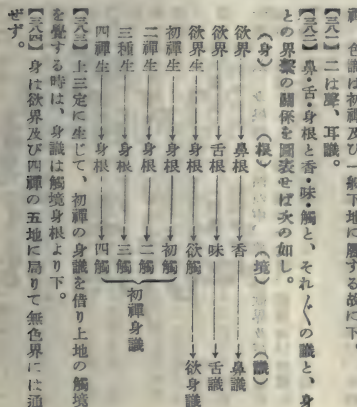 禪、色識は初禪及び一般下地に屬する故に下。
【三八二】二は聲、耳識。
【三八三】鼻・舌・身根と香・味・觸と、それ〲の識と、身
との界繫の關係を圖表せば次の如し。
（身）（根）（境）（識）
欲界→鼻根→香→鼻識
欲界→舌根→味→舌識
欲界生→身根→欲觸→欲身識
初禪生→身根→初觸
二禪生→身根→二觸
三種生→身根→三觸
四禪生→身根→四觸
初禪身識
上三定に生じて、初禪の身識を借り上地の觸境
を覺する時は、身識は觸境身根より下。
【三八四】身は欲界及び四禪の五地に局りて無色界には通
ぜず。